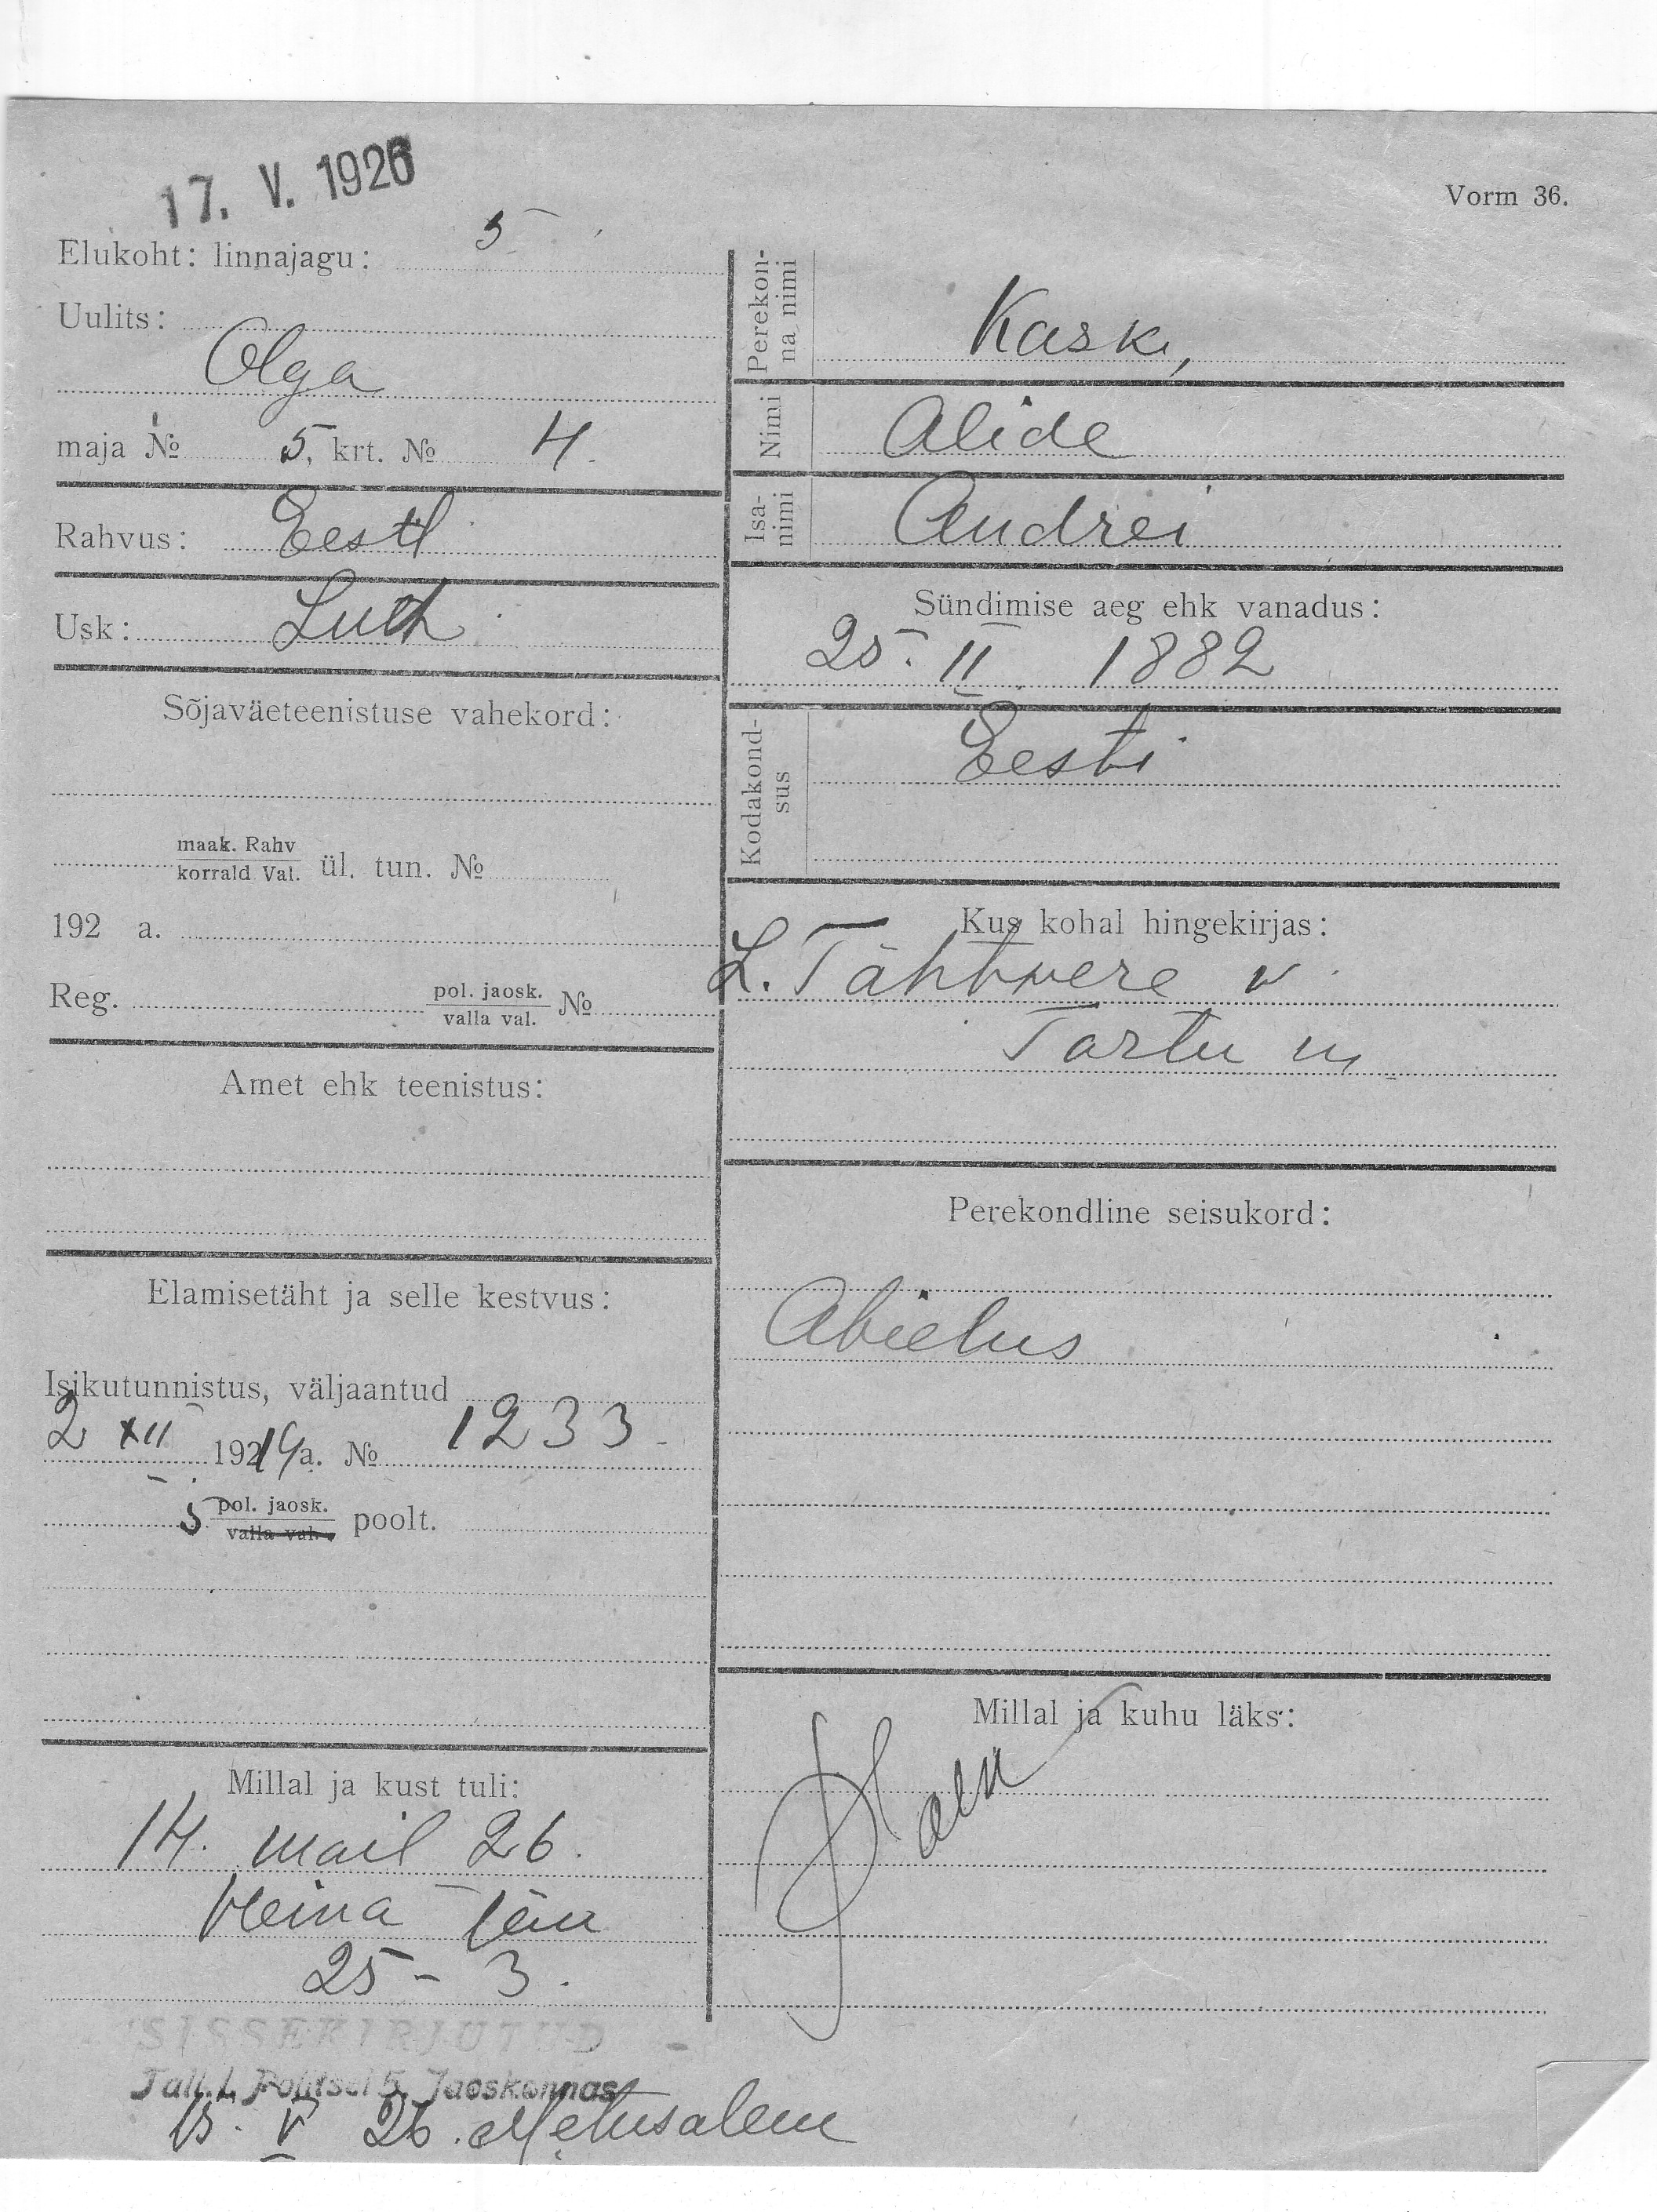 17. V. 1926
Vorm 36.
Elukoht: linnajagu: 5
Uulits:
Olga
maja № 5, krt. № 4.
Rahvus: Eesti
Usk: Luth
Sõjaväeteenistuse vahekord:
maak. Rahv
korrald Val. ül. tun. №
192 a.
Reg. pol. jaosk.
valla val. №
Amet ehk teenistus:
Elamisetäht ja selle kestvus:
Isikutunnistus, väljaantud
2 XII 1921 a. № 1233.
5 pol. jaosk.
valla val. poolt.
Millal ja kust tuli:
14. mail 26.
Heina tän
25 - 3.
SISSEKIRJUTUD
Tall. L. Politsei 5. Jaoskonnas
15. V 26. Metusalem
Perekon-
na nimi
Kask,
Nimi
Alide
Isa-
nimi
Andrei
Sündimise aeg ehk vanadus:
25. II 1882
Kodakond-
sus
Eesti
Kus kohal hingekirjas:
L. Tähtvere v.
Tartu m
Perekondline seisukord:
Abielus
Millal ja kuhu läks: